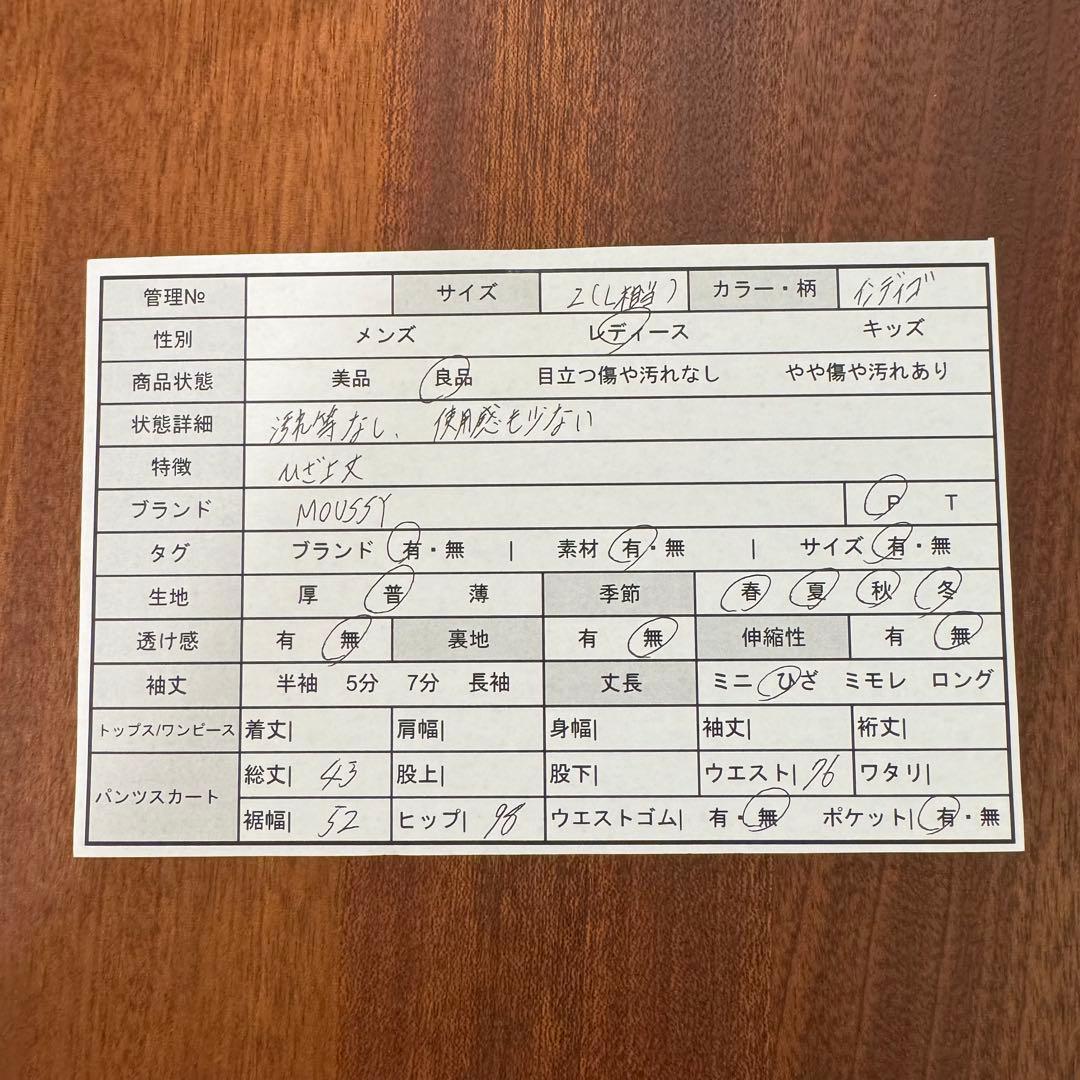 管理№ サイズ 2(L相当) カラー・柄 インディゴ
性別 メンズ レディース キッズ
商品状態 美品 良品 目立つ傷や汚れなし やや傷や汚れあり
状態詳細 汚れ等なし、使用感も少ない
特徴 ひざ上丈
ブランド MOUSSY P T
タグ ブランド 有・無 | 素材 有・無 | サイズ 有・無
生地 厚 普 薄 季節 春 夏 秋 冬
透け感 有 無 裏地 有 無 伸縮性 有 無
袖丈 半袖 5分 7分 長袖 丈長 ミニ ひざ ミモレ ロング
トップス/ワンピース 着丈| 肩幅| 身幅| 袖丈| 裄丈|
パンツスカート 総丈| 43 股上| 股下| ウエスト| 76 ワタリ|
裾幅| 52 ヒップ| 98 ウエストゴム| 有・無 ポケット| 有・無